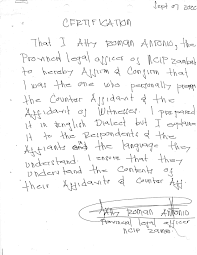 Sept 07 2000
CERTIFICATION
That I Atty Roman ANTONIO, the
Provincial legal officer of NCIP Zambales
to hereby Affirm & Confirm that
I was the one who personally prep
the Counter Affidavit & the
Affidavit of Witnesses I prepared
it in English Dialect but I explain
it to the Respondents & the
Affiants and the language they
understand. I ensure that they
understand the contents of
their Affidavits & Counter Aff
Atty Roman Antonio
Provincial legal officer
NCIP Zamb.